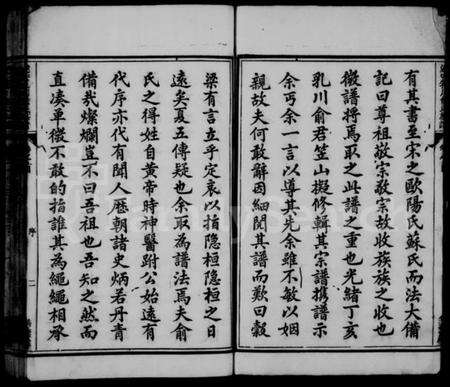 有其書至宋之歐陽氏蘇氏而法大備
記曰尊祖敬宗敬宗故收族族之收也
微譜將焉取之此譜之重也光緒丁亥
乳川俞君笠山擬修輯其宗譜携譜示
余丐余一言以導其先余雖不敏以姻
親故夫何敢辭因細閱其譜而歎曰穀
梁有言立乎定哀以指隱桓隱桓之日
遠矣夏五傳疑也余取為譜法焉夫俞
氏之得姓自黃帝時神醫跗公始遠有
代序亦代有聞人歷朝諸史炳若丹青
備哉燦爛豈不曰吾祖也吾知之然而
直湊單微不敢的指誰其為繩繩相承
序
二